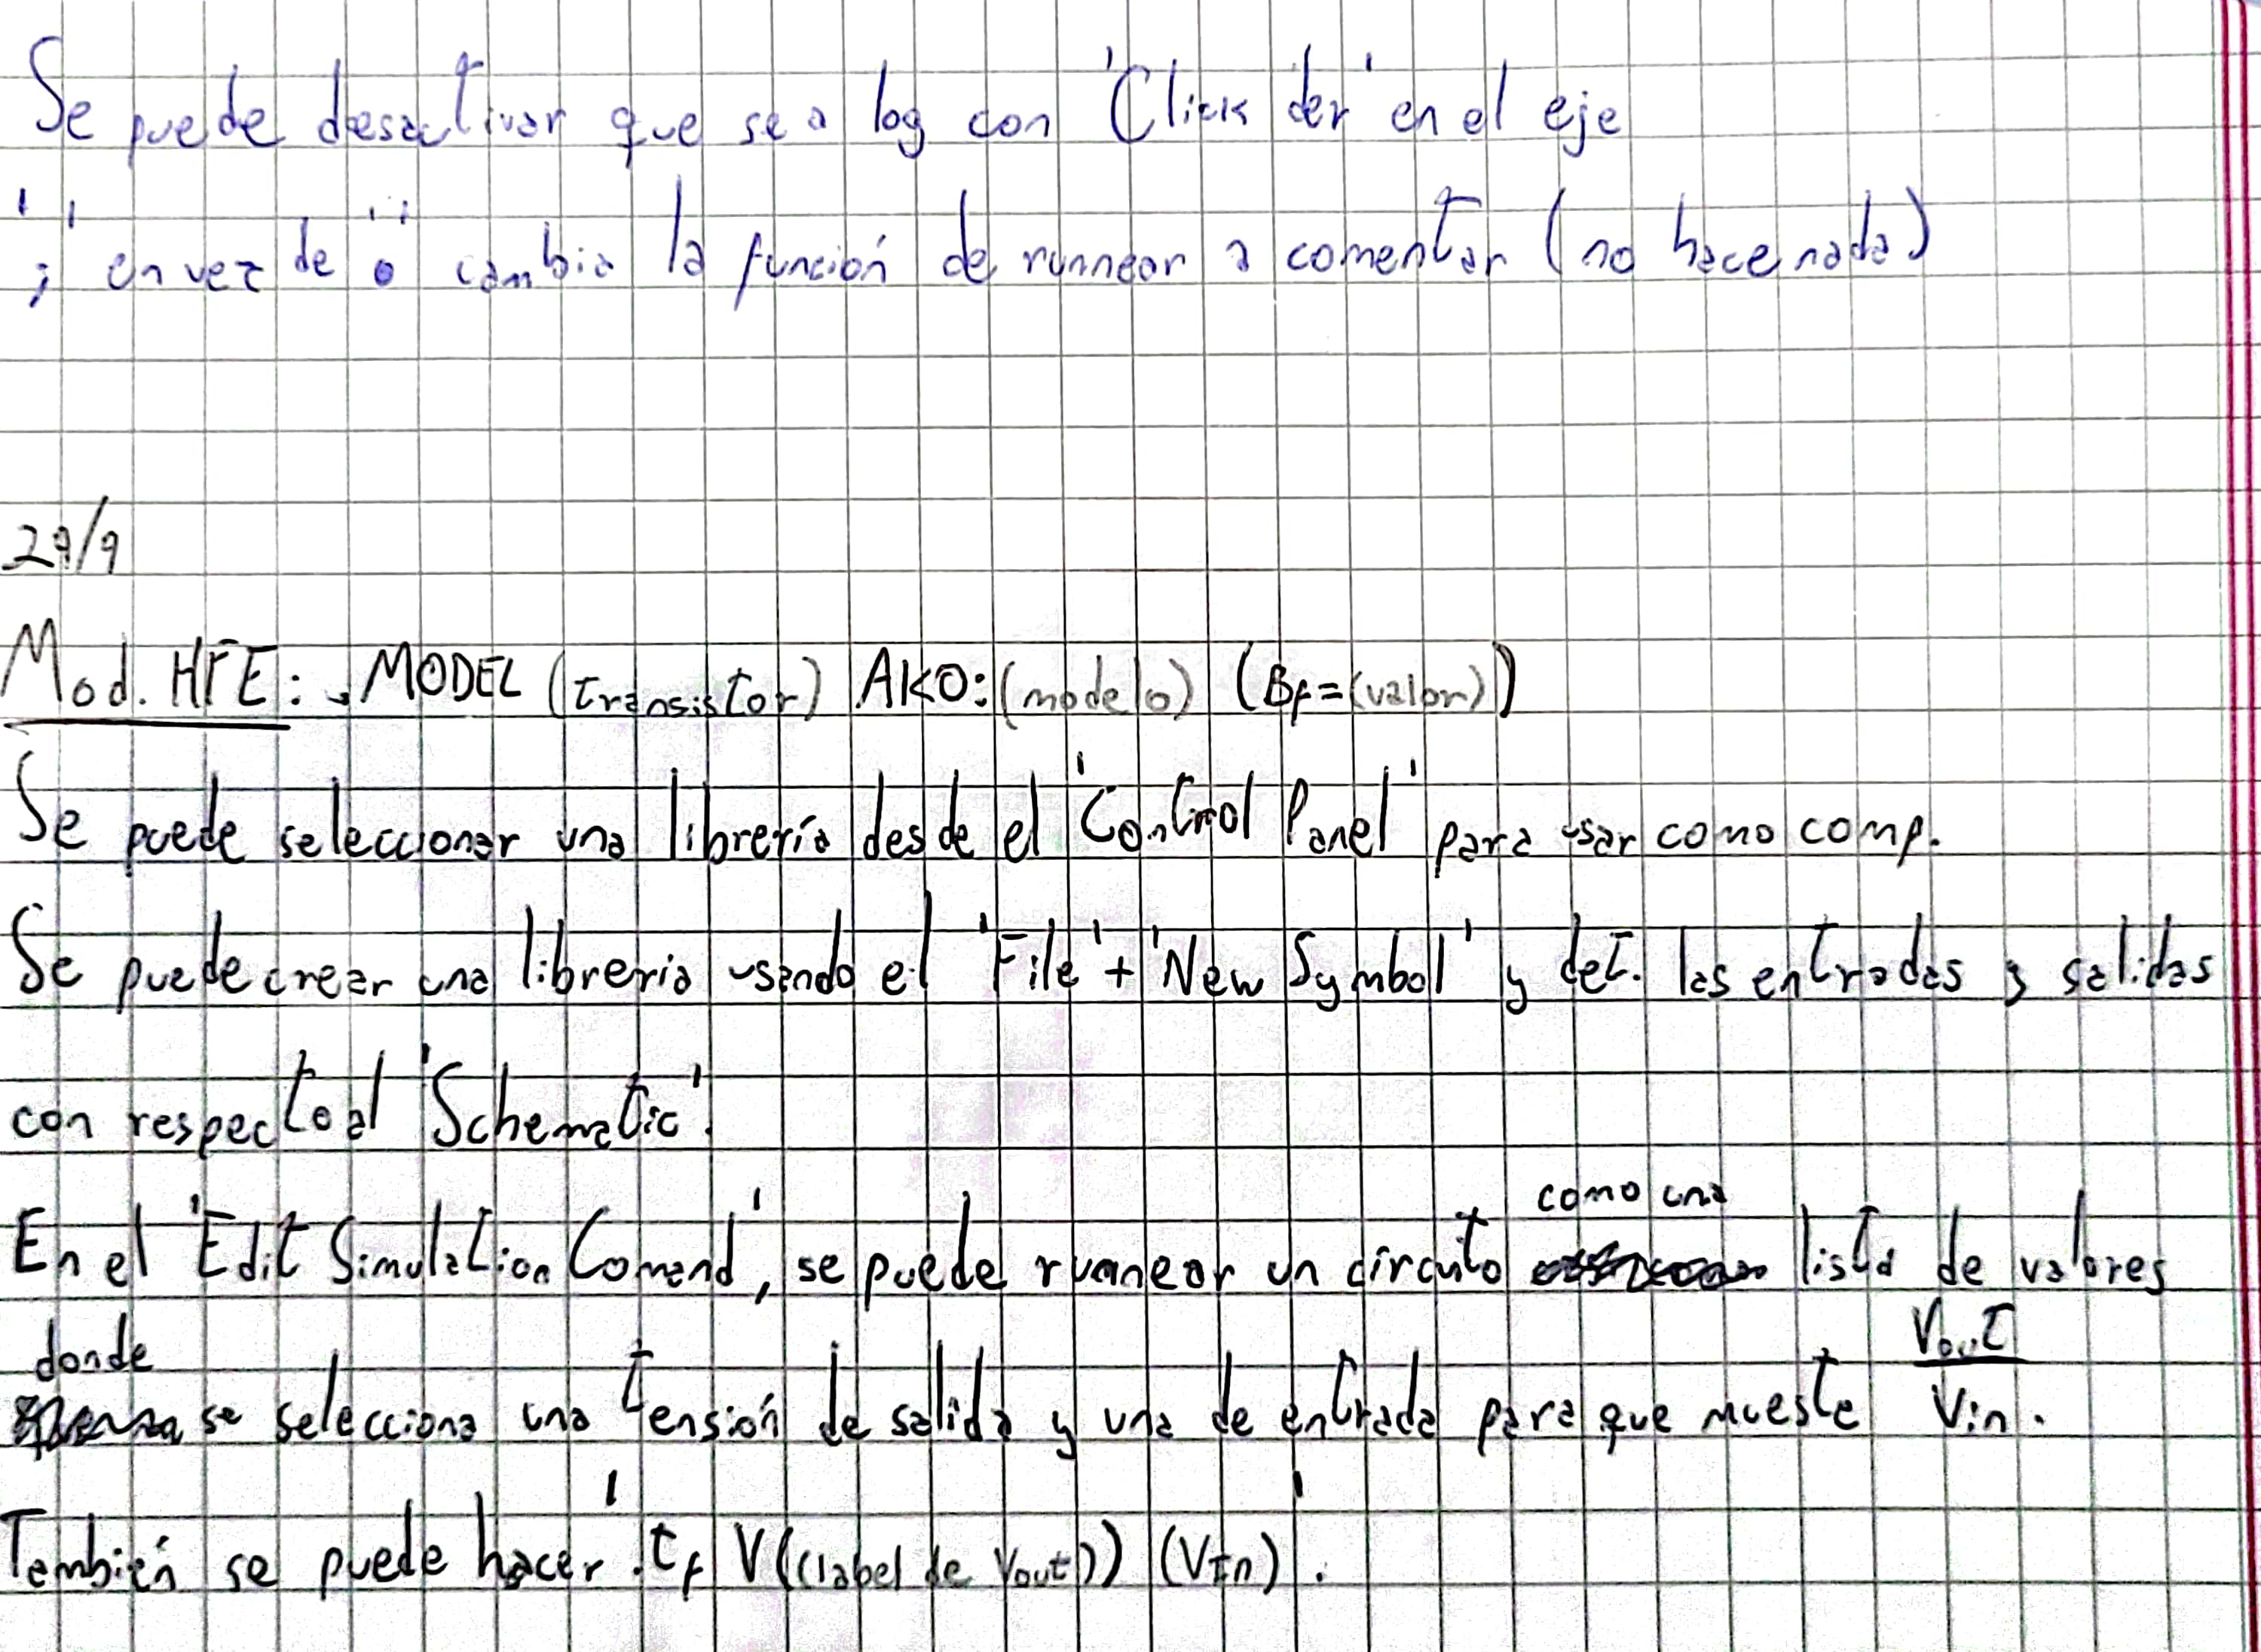 Se puede desactivar que sea log con 'Click der' en el eje
';' en vez de '.' cambia la función de runnear a comentar (no hace nada)
29/9
Mod. HFE: .MODEL (transistor) AKO:(modelo) (BF=(valor))
Se puede seleccionar una librería desde el 'Control Panel' para usar como comp.
Se puede crear una librería usando el 'File' + 'New Symbol' y det. las entradas y salidas
con respecto al 'Schematic'.
En el 'Edit Simulation Comand', se puede runnear un circuito como una lista de valores
donde se selecciona una tensión de salida y una de entrada para que mueste Vout/Vin.
También se puede hacer '.tf V((label de Vout)) (VIn)'.